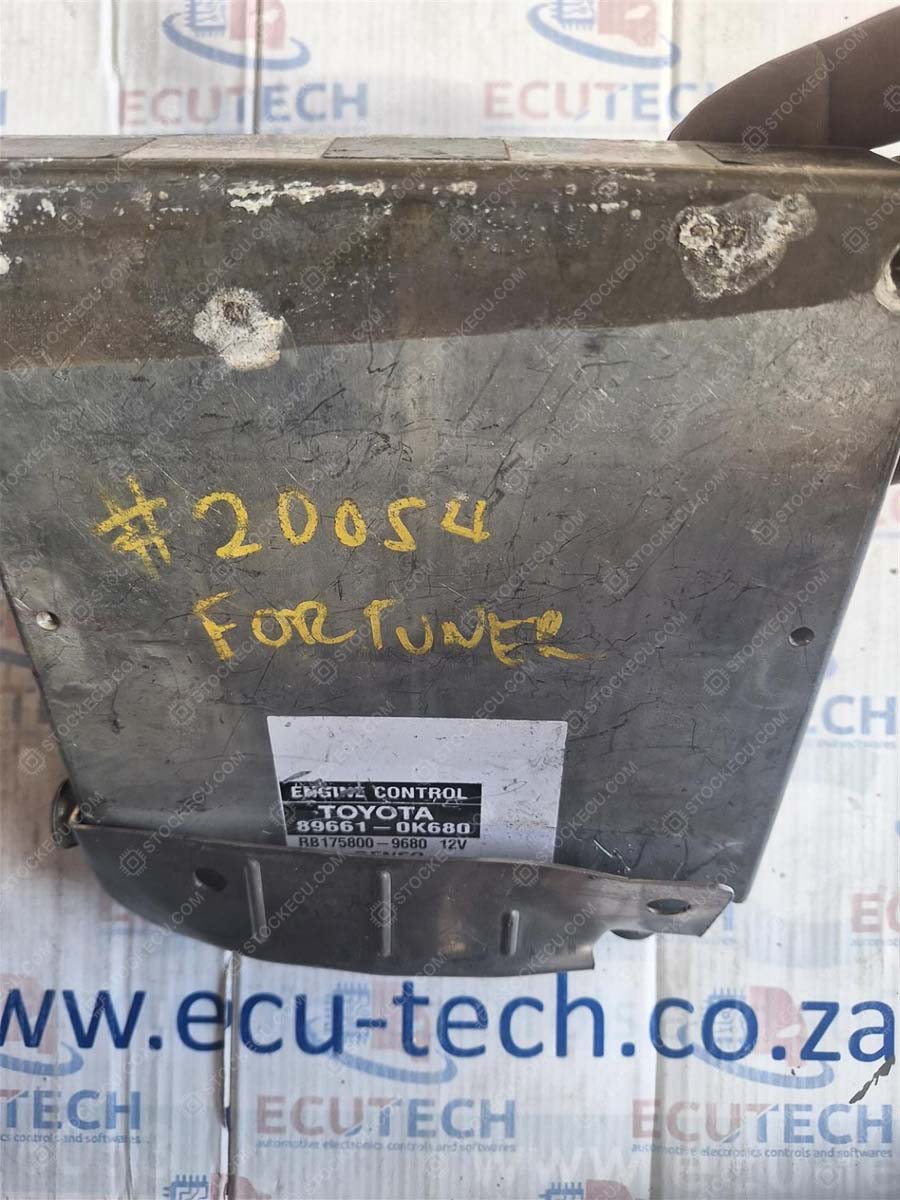 ECUTECH ECUTECH
#20054
FORTUNER
ENGINE CONTROL
TOYOTA
89661-0K680
RB175800-9680 12V
DENSO
www.ecu-tech.co.za
ECUTECH ECUTECH ECUTECH
cs controls and softwares automotive electronics controls and softwares automotive electronics controls and softwares
STOCKECU.COM